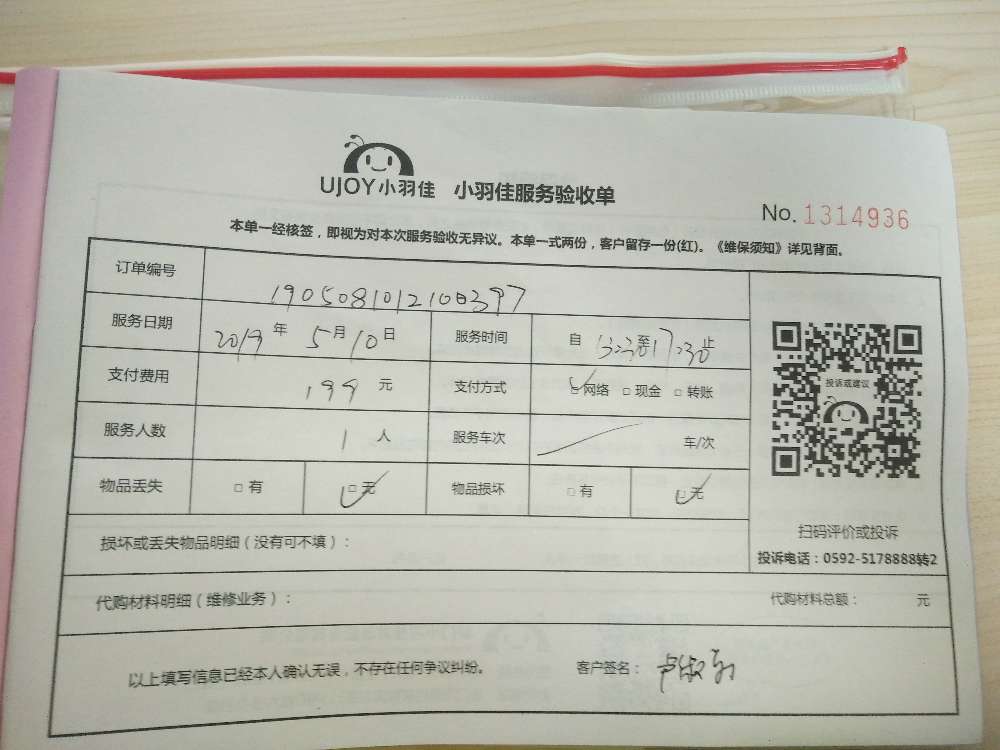 UJOY小羽佳 小羽佳服务验收单
No. 1314936
本单一经核签，即视为对本次服务验收无异议。本单一式两份，客户留存一份(红)。《维保须知》详见背面。
订单编号 190508101210397
服务日期 2019 年 5 月 10 日 服务时间 自 13:30 至 17:30 止
支付费用 199 元 支付方式 ☑网络 □现金 □转账
服务人数 1 人 服务车次 / 车/次
物品丢失 □有 ☑无 物品损坏 □有 ☑无
投诉或建议
扫码评价或投诉
投诉电话：0592-5178888转2
损坏或丢失物品明细（没有可不填）：
代购材料明细（维修业务）： 代购材料总额： 元
以上填写信息已经本人确认无误，不存在任何争议纠纷。 客户签名：卢淑